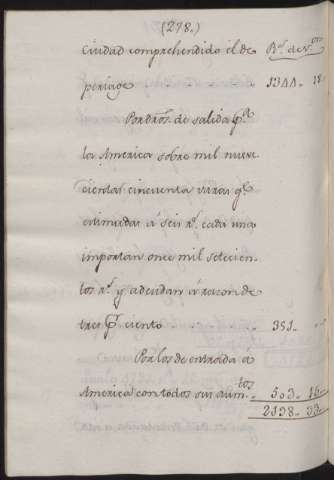 (278.)
Ciudad comprehendido el de R.s de v.on
periage .. 1344.. 18
Por dros. de salida p.a
la America sobre mil nueve
cientas cincuenta varas q.e
estimadas á seis r.s cada una
importan once mil setecien
tos r.s y adeudan á razon de
tres p.r ciento .. 351..
Por los de entrada a
America con todos sus aum.tos 503.. 15
2198.. 33